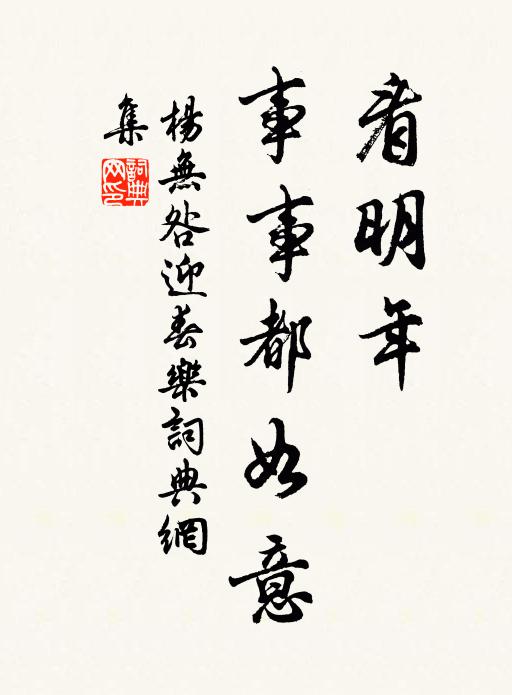 看明年
事事都如意
楊無咎迎春樂詞典網
集
詞典網印